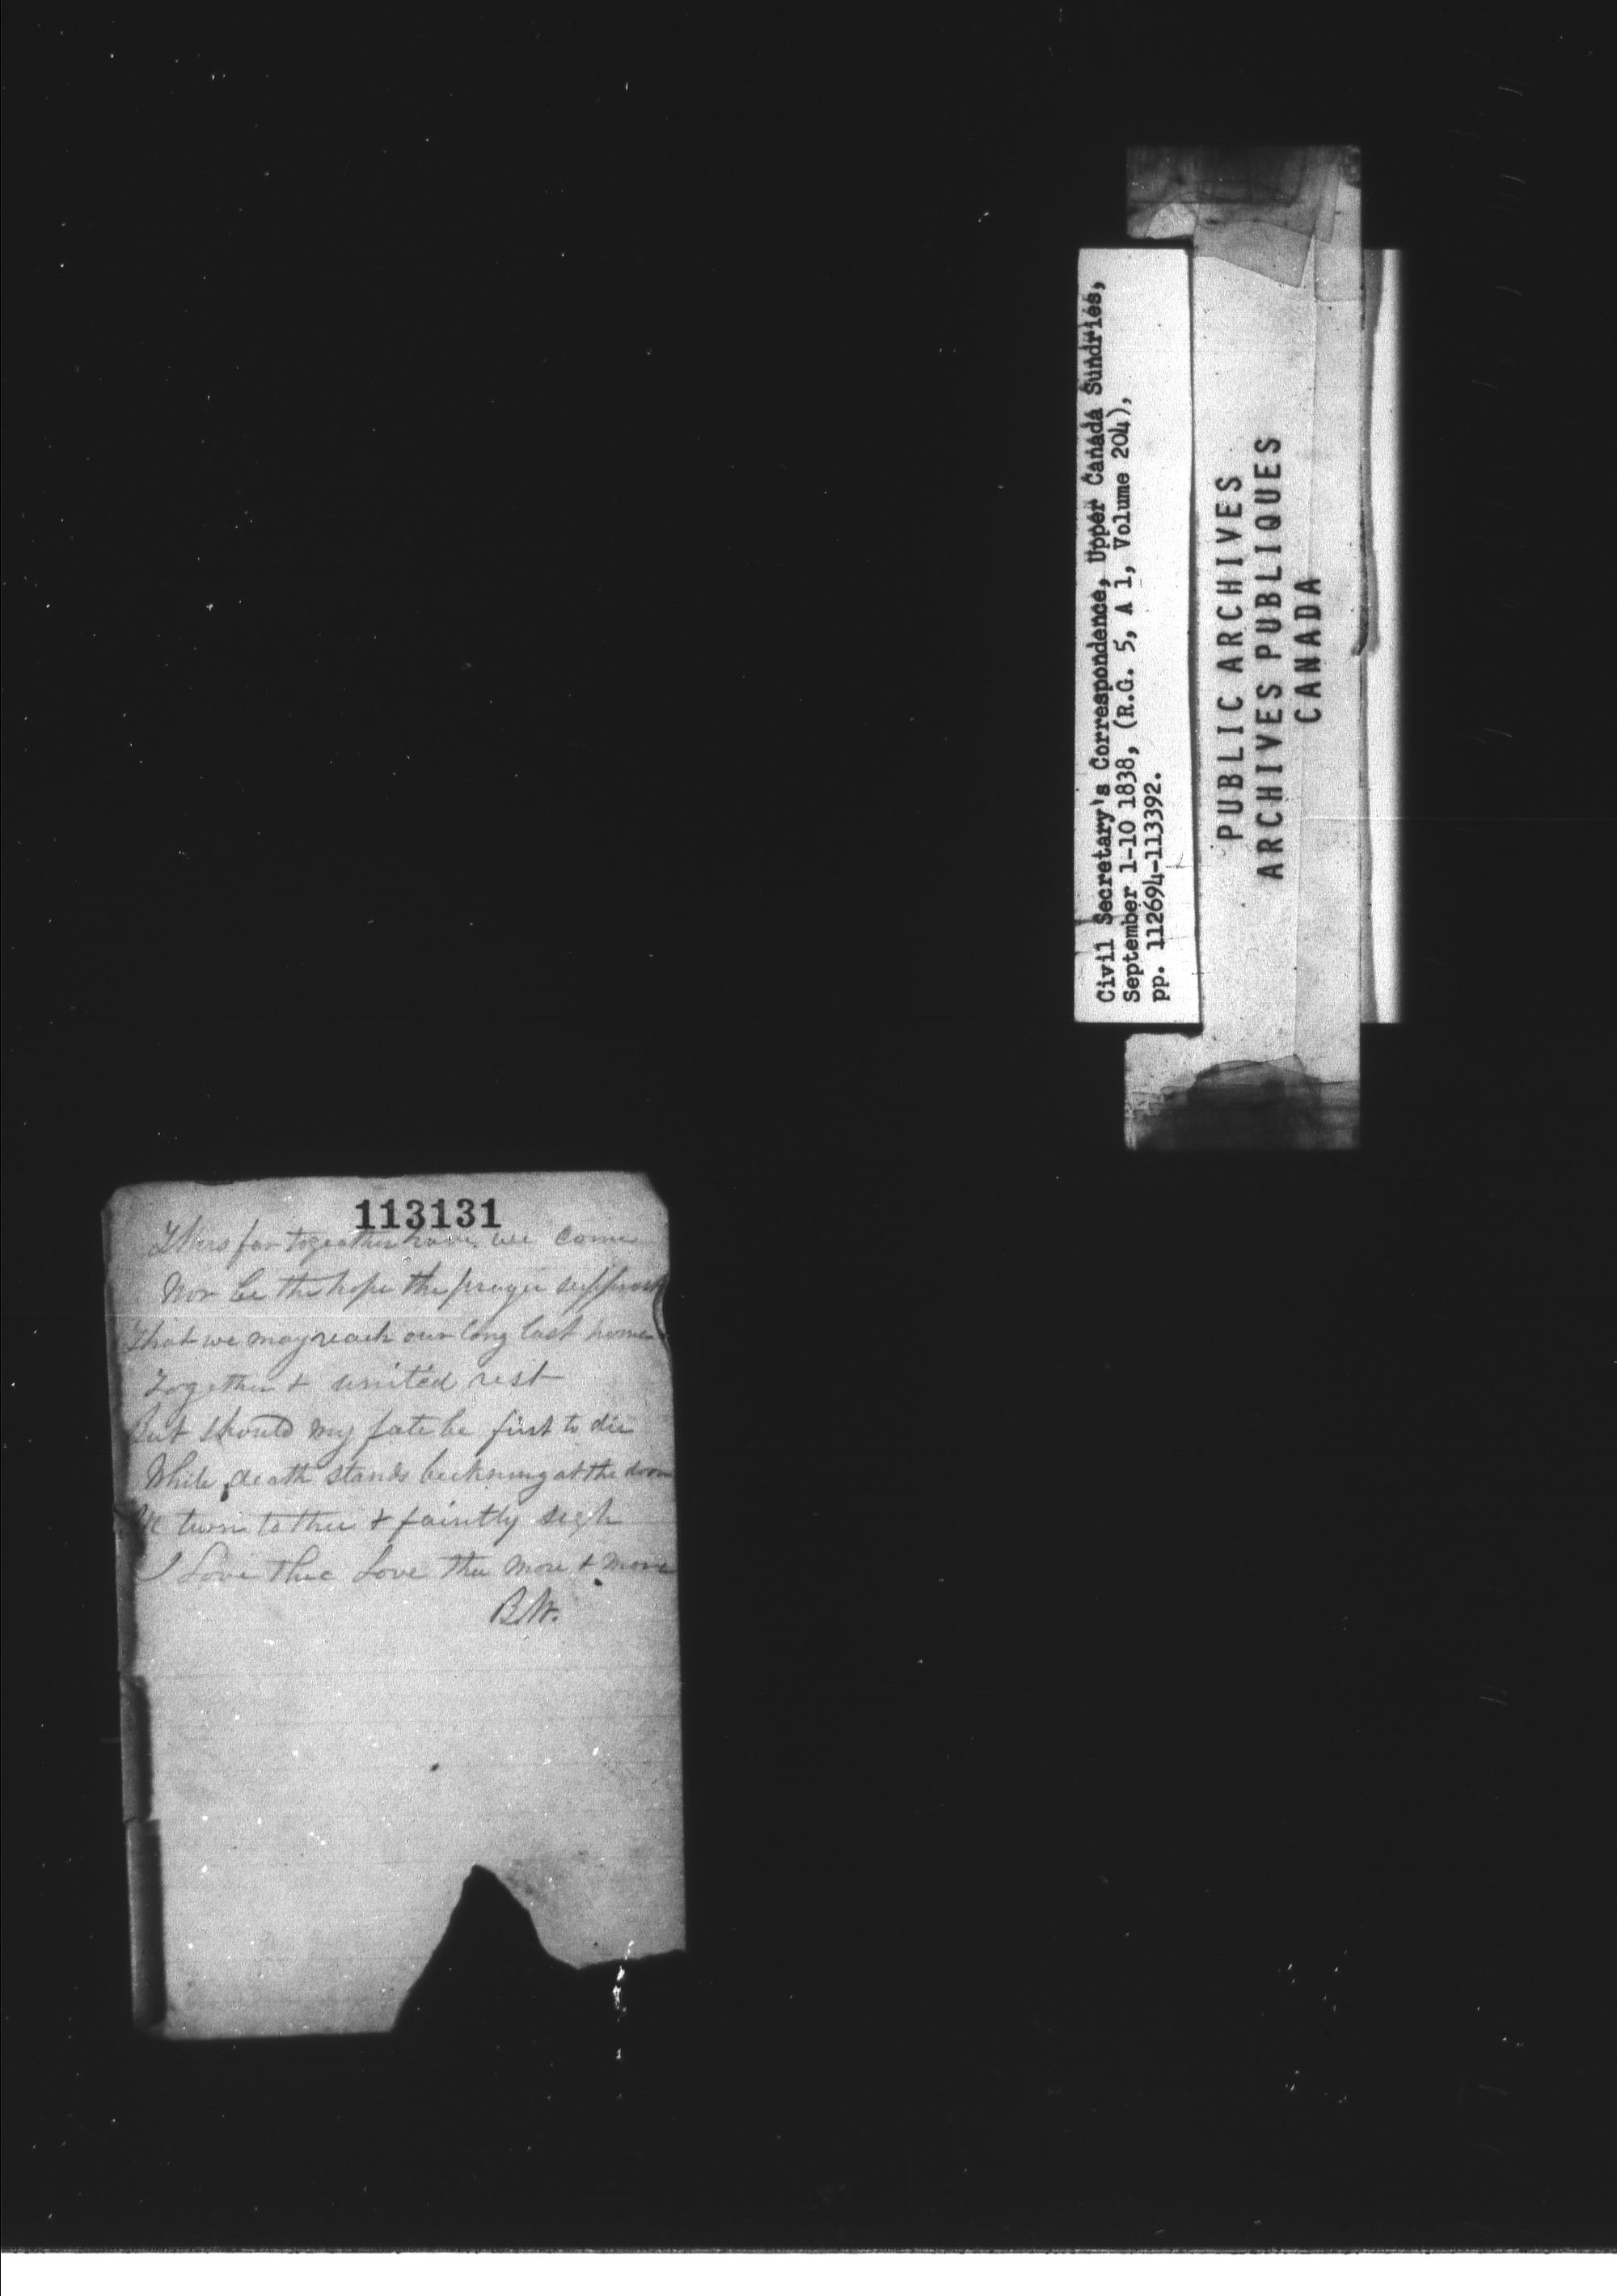 Civil Secretary's Correspondence, Upper Canada Sundries,
September 1-10 1838, (R.G. 5, A 1, Volume 204),
pp. 112694-113392.
PUBLIC ARCHIVES
ARCHIVES PUBLIQUES
CANADA
113131
Thus far together have we come
Nor be the hope the prayer suppresst
That we may reach our long last home
Together & united rest
But should my fate be first to die
While death stands beckning at the door
Ill turn to thee & faintly sigh
I Love thee Love thee more & more
B.W.